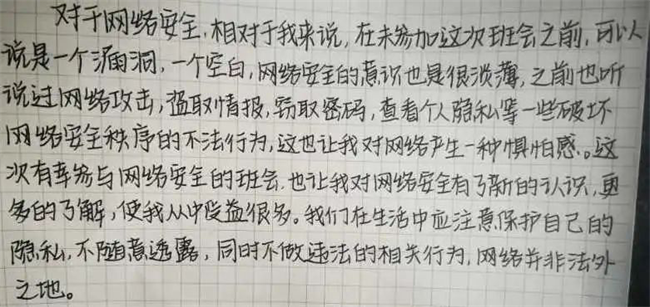 对于网络安全,相对于我来说,在未参加这次班会之前,可以
说是一个漏洞,一个空白,网络安全的意识也是很淡薄,之前也听
说过网络攻击,盗取情报,窃取密码,查看个人隐私等一些破坏
网络安全秩序的不法行为,这也让我对网络产生一种惧怕感。这
次有幸参与网络安全的班会,也让我对网络安全有了新的认识,更
多的了解,使我从中受益很多。我们在生活中应注意保护自己的
隐私,不随意透露,同时不做违法的相关行为,网络并非法外
之地。